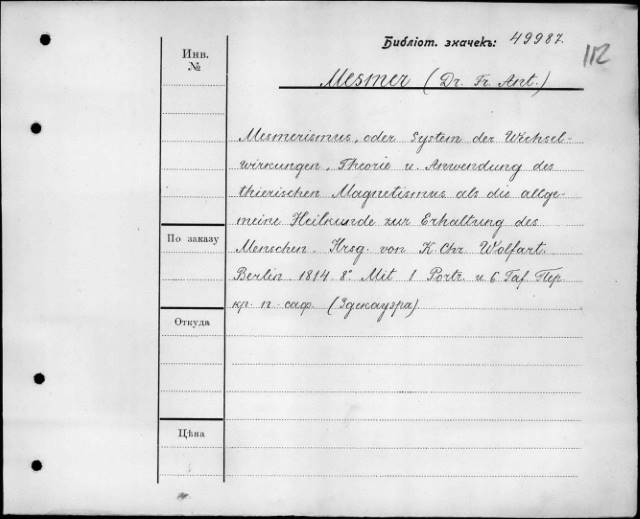 Библіот. значекъ: 49987.
112
Инв.
№
Mesmer (Dr. Fr. Ant.)
Mesmerismus, oder System der Wechsel-
wirkungen, Theorie u. Anwendung des
thierischen Magnetismus als die allge-
meine Heilkunde zur Erhaltung des
Menschen. Hrsg. von K. Chr. Wolfart.
Berlin 1814. 8° Mit 1 Portr. u 6 Taf. Пер.
кр. п. саф. (Здекауэра)
По заказу
Откуда
Цѣна